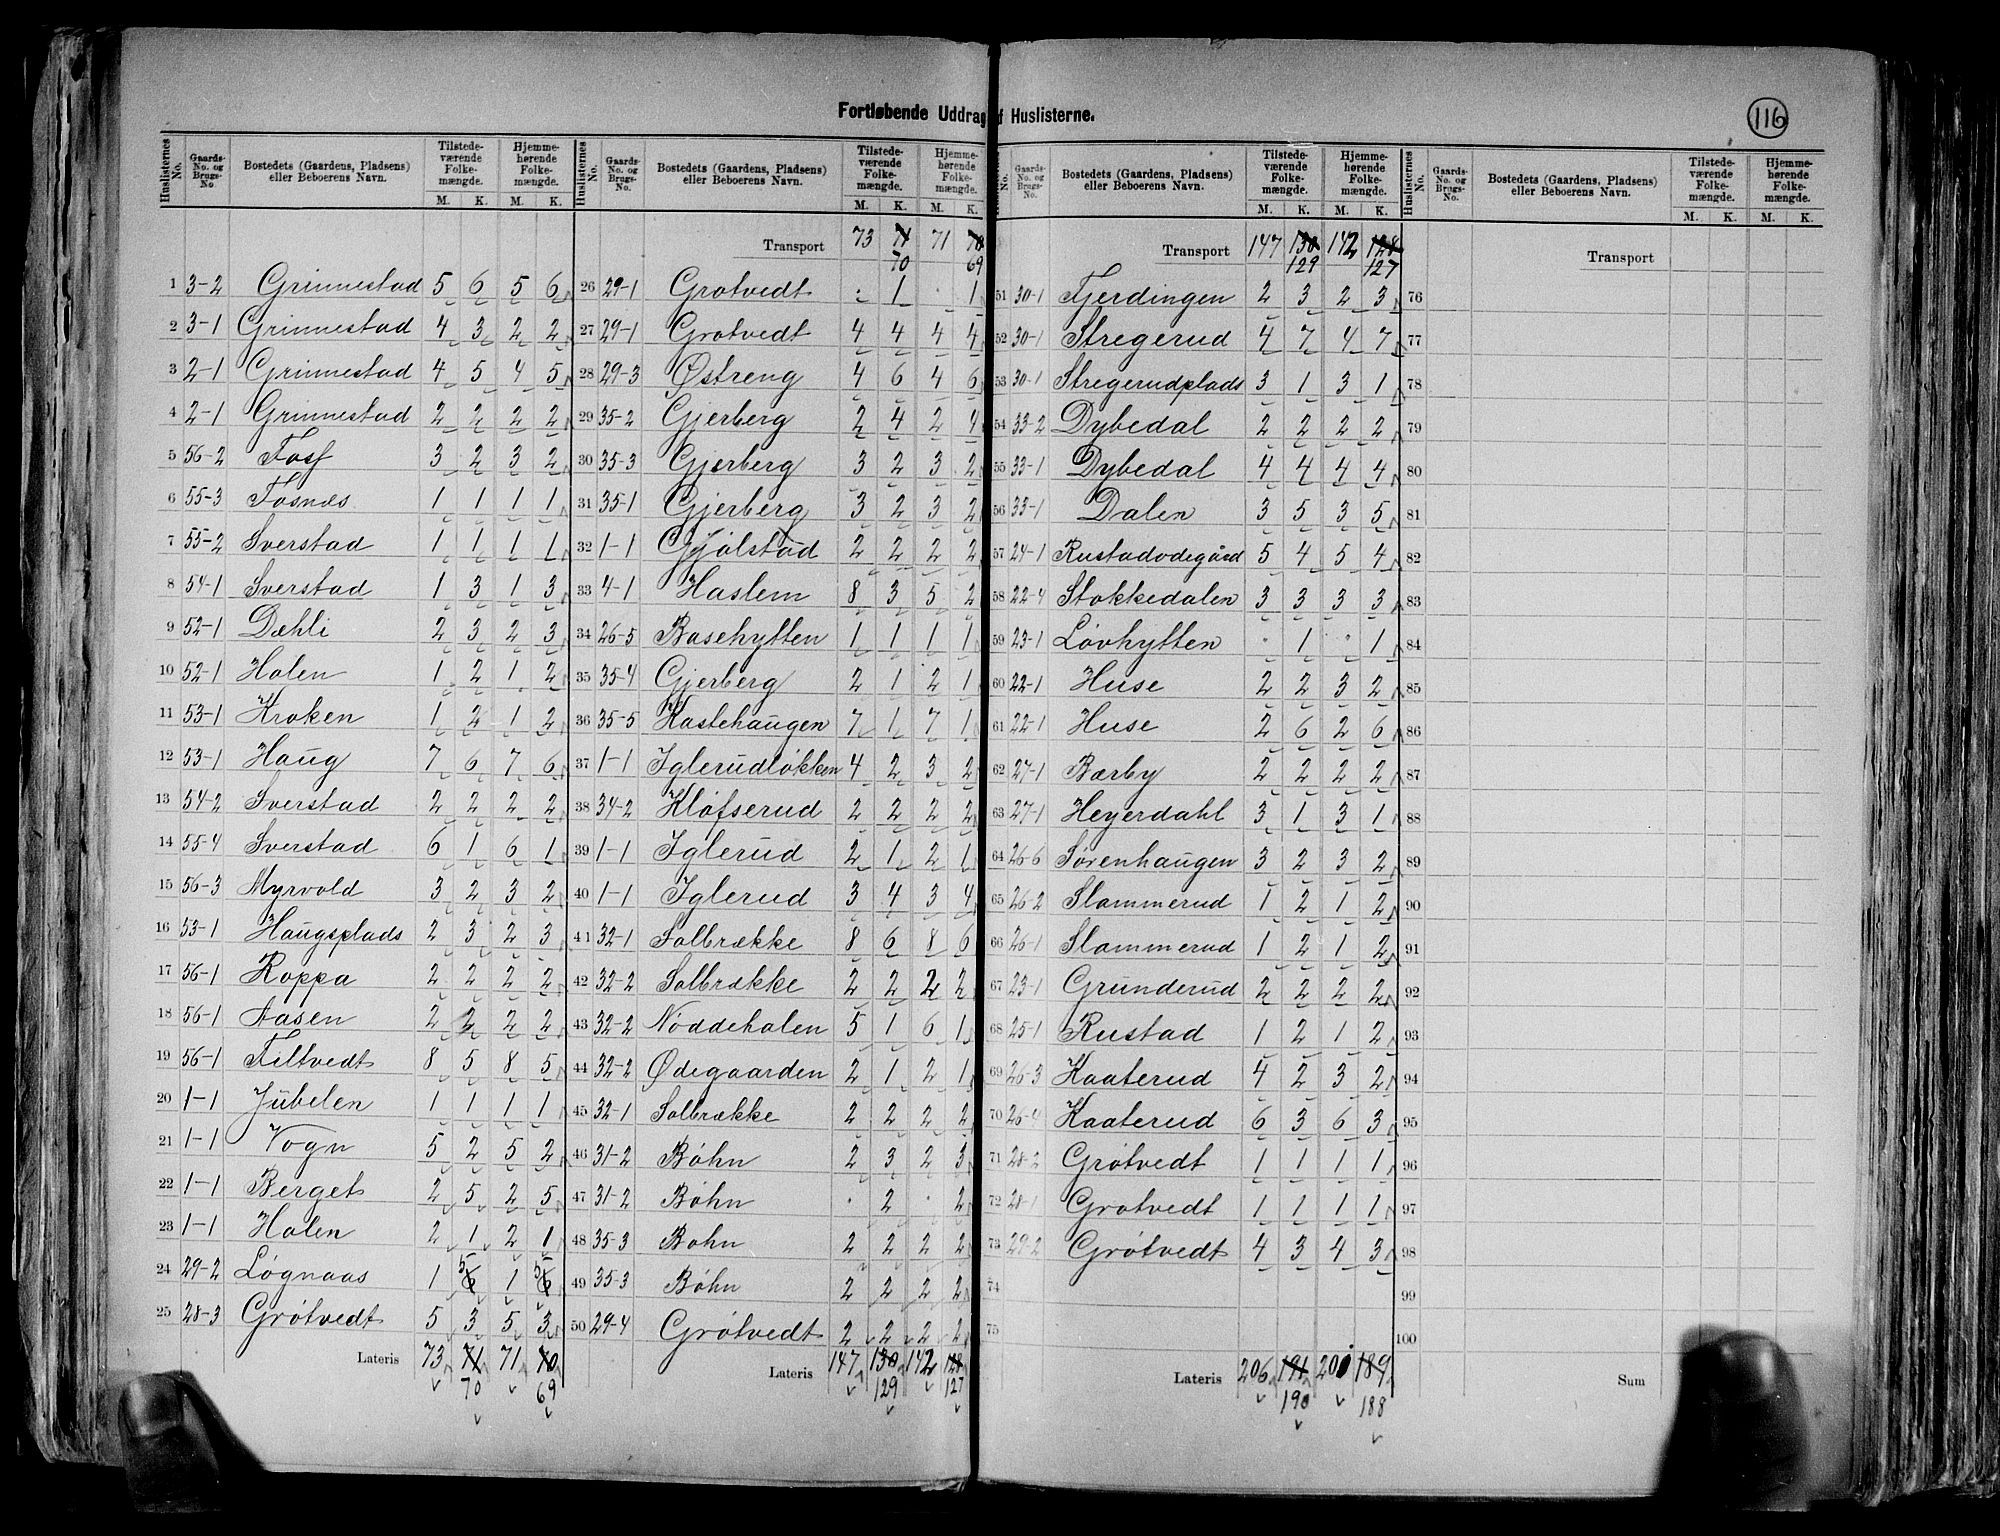 Fortløbende Uddrag af Huslisterne.
116
Huslisternes No. | Gaards-No. og Brugs-No | Bostedets (Gaardens, Pladsens) eller Beboerens Navn. | Tilstedeværende Folkemængde. M. K. | Hjemmehørende Folkemængde. M. K.
1 3-2 Grinnestad 5 6 5 6
2 3-1 Grinnestad 4 3 2 2
3 2-1 Grinnestad 4 5 4 5
4 2-1 Grinnestad 2 2 2 2
5 56-2 Foss 3 2 3 2
6 55-3 Fosnæs 1 1 1 1
7 55-2 Sverstad 1 1 1 1
8 54-1 Sverstad 1 3 1 3
9 52-1 Dæhli 2 3 2 3
10 52-1 Holen 1 2 1 2
11 53-1 Kroken 1 2 1 2
12 53-1 Haug 7 6 7 6
13 54-2 Sverstad 2 2 2 2
14 55-4 Sverstad 6 1 6 1
15 56-3 Myrvold 3 2 3 2
16 53-1 Haugsplads 2 3 2 3
17 56-1 Roppa 2 2 2 2
18 56-1 Aasen 2 2 2 2
19 56-1 Filtvedt 8 5 8 5
20 1-1 Jubelen 1 1 1 1
21 1-1 Vogn 5 2 5 2
22 1-1 Berget 2 5 2 5
23 1-1 Holen 2 1 2 1
24 29-2 Løgnaas 1 5 6 1 5 6
25 28-3 Grøtvedt 5 3 5 3
Lateris 73 71 71 70
70 69
Huslisternes No. | Gaards-No. og Brugs-No. | Bostedets (Gaardens, Pladsens) eller Beboerens Navn. | Tilstedeværende Folkemængde. M. K. | Hjemmehørende Folkemængde. M. K.
Transport 73 71 71 70
70 69
26 29-1 Grøtvedt . 1 . 1
27 29-1 Grøtvedt 4 4 4 4
28 29-3 Østreng 4 6 4 6
29 35-2 Gjerberg 2 4 2 4
30 35-3 Gjerberg 3 2 3 2
31 35-1 Gjerberg 3 2 3 2
32 1-1 Gjølstad 2 2 2 2
33 4-1 Haslem 8 3 5 2
34 26-5 Basehytten 1 1 1 1
35 35-4 Gjerberg 2 1 2 1
36 35-5 Haslehaugen 7 1 7 1
37 1-1 Iglerudløkken 4 2 3 2
38 34-2 Kløfserud 2 2 2 2
39 1-1 Iglerud 2 1 2 1
40 1-1 Iglerud 3 4 3 4
41 32-1 Solbrække 8 6 8 6
42 32-2 Solbrække 2 2 2 2
43 32-2 Nøddeholen 5 1 6 1
44 32-2 Ødegaarden 2 1 2 1
45 32-1 Solbrække 2 2 2 2
46 31-2 Bøhn 2 3 2 3
47 31-2 Bøhn . 2 . 2
48 35-3 Bøhn 2 2 2 2
49 35-3 Bøhn 2 2 2 2
50 29-4 Grøtvedt 2 2 2 2
Lateris 147 130 142 128
129 127
No. | Gaards-No. og Brugs-No. | Bostedets (Gaardens, Pladsens) eller Beboerens Navn. | Tilstedeværende Folkemængde. M. K. | Hjemmehørende Folkemængde. M. K.
Transport 147 130 142 128
129 127
51 30-1 Fjerdingen 2 3 2 3
52 30-1 Stregerud 4 7 4 7
53 30-1 Stregerudplads 3 1 3 1
54 33-2 Dybedal 2 2 2 2
55 33-1 Dybedal 4 4 4 4
56 33-1 Dalen 3 5 3 5
57 24-1 Rustadødegård 5 4 5 4
58 22-4 Stokkedalen 3 3 3 3
59 23-1 Løvhytten . 1 . 1
60 22-1 Huse 2 2 3 2
61 22-1 Huse 2 6 2 6
62 27-1 Bærby 2 2 2 2
63 27-1 Heyerdahl 3 1 3 1
64 26-6 Sørenhaugen 3 2 3 2
65 26-2 Slammerud 1 2 1 2
66 26-1 Slammerud 1 2 1 2
67 23-1 Grunderud 2 2 2 2
68 25-1 Rustad 1 2 1 2
69 26-3 Kaaterud 4 2 3 2
70 26-4 Kaaterud 6 3 6 3
71 28-2 Grøtvedt 1 1 1 1
72 28-1 Grøtvedt 1 1 1 1
73 29-2 Grøtvedt 4 3 4 3
74
75
Lateris 206 191 201 189
190 188
Huslisternes No. | Gaards-No. og Brugs-No. | Bostedets (Gaardens, Pladsens) eller Beboerens Navn. | Tilstedeværende Folkemængde. M. K. | Hjemmehørende Folkemængde. M. K.
Transport
76
77
78
79
80
81
82
83
84
85
86
87
88
89
90
91
92
93
94
95
96
97
98
99
100
Sum